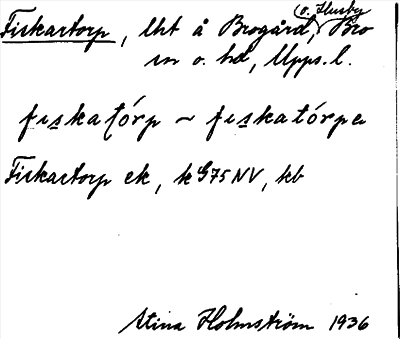 Fiskartorp, lht å Brogård, o. Husby, Bro
sn o. hd, Upps. l.
fiskatórp ~ fiskatórpa
Fiskartorp ek, k G75 NV, kb
Stina Holmström 1936